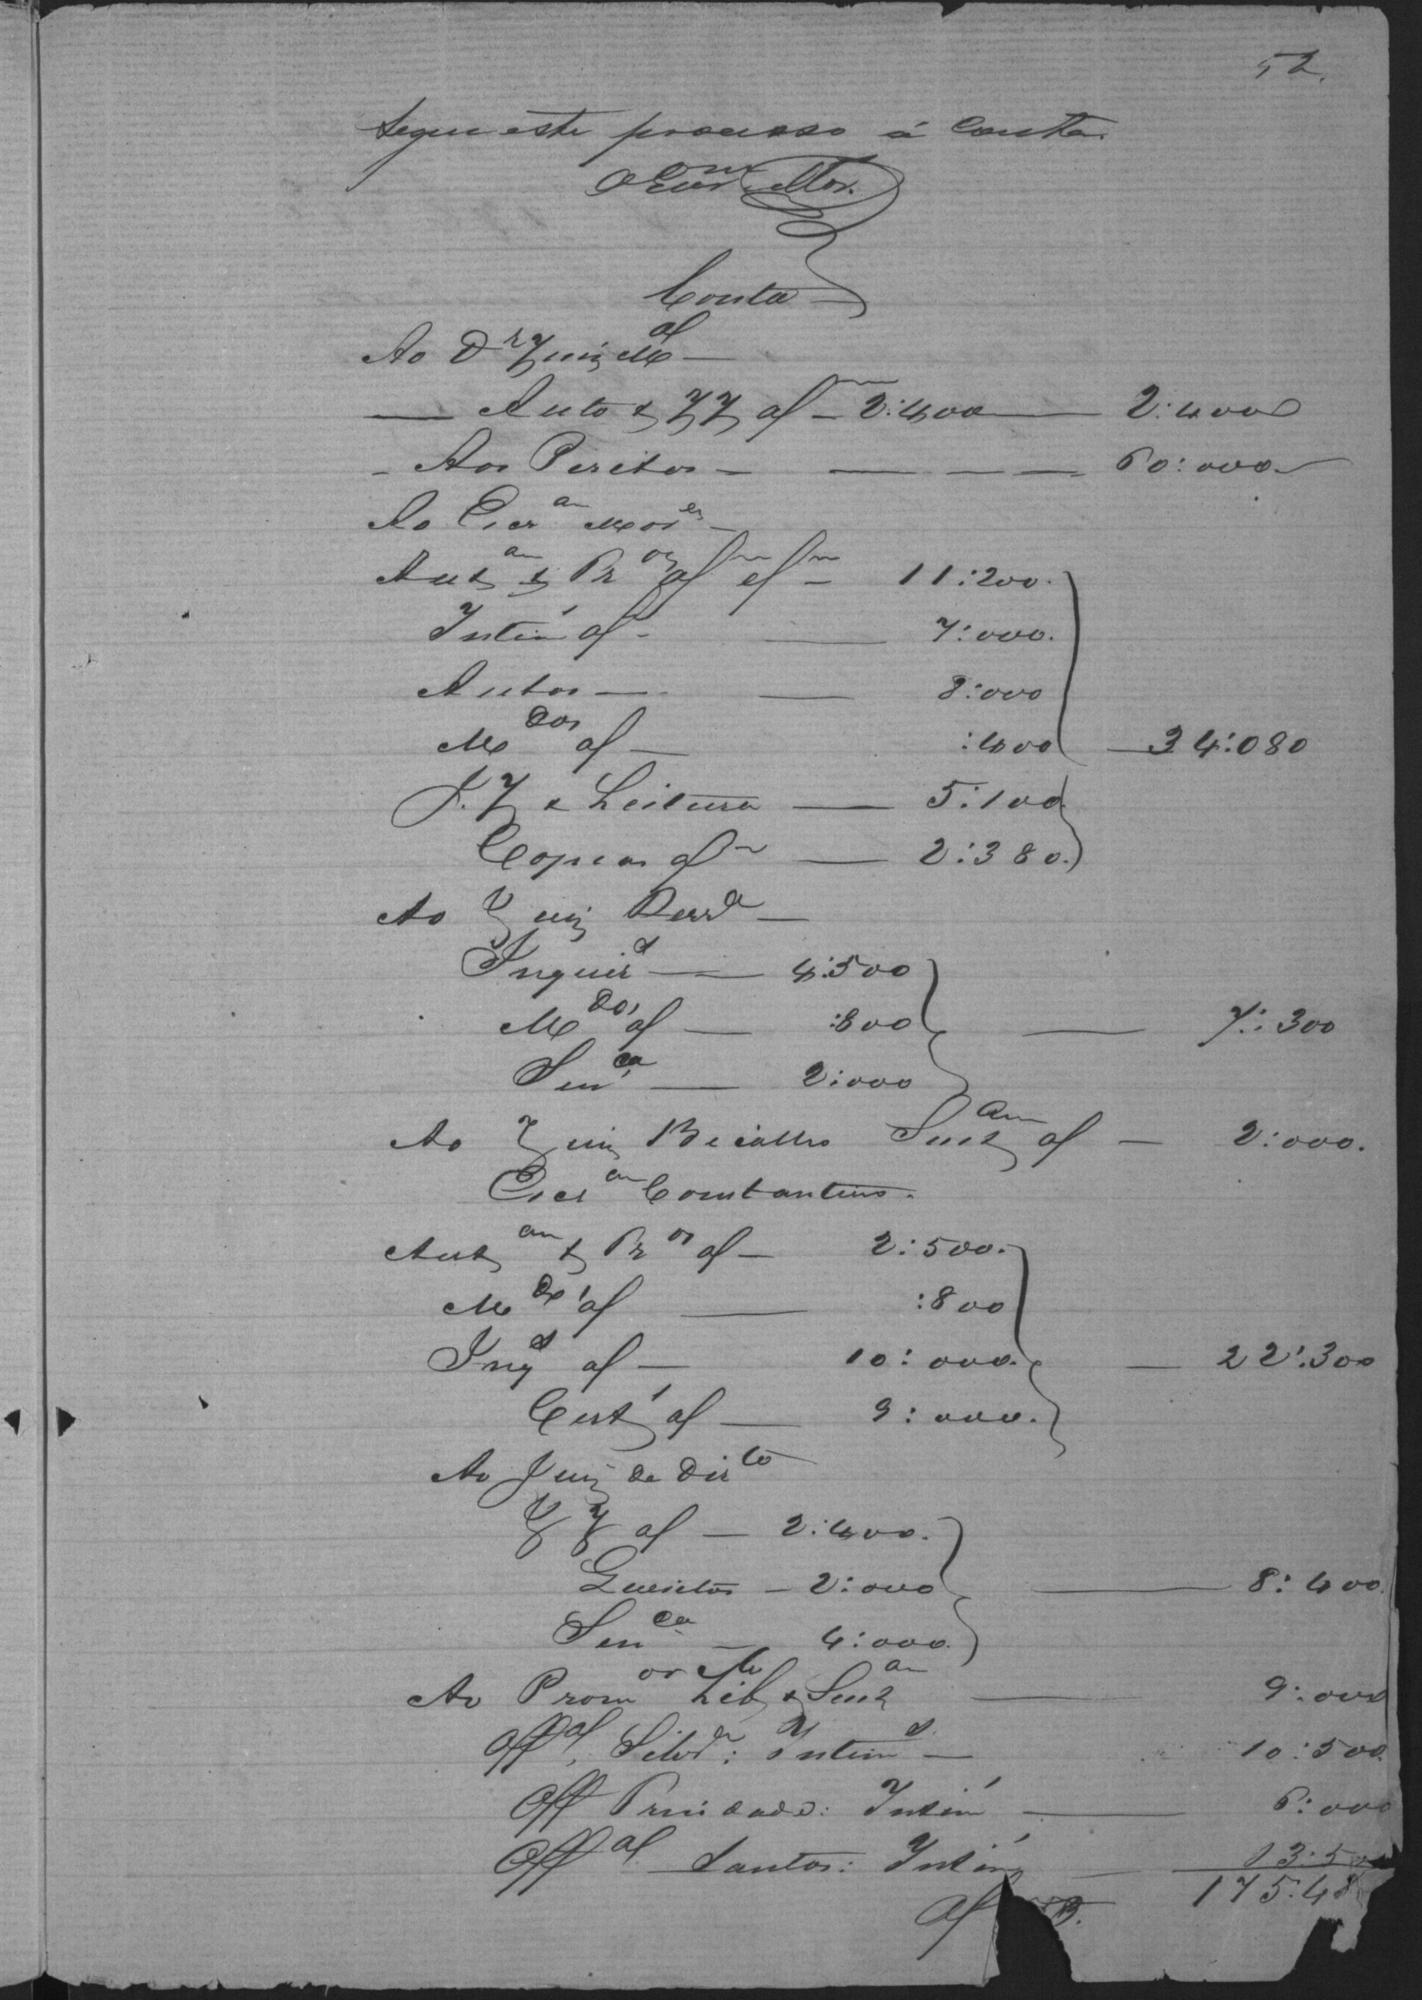 52.
Segue este processo á Conta.
O Escr.am Mor.
Conta
Ao Dr Juiz M.al
Auto & JJ af 2:400 2:400
Aos Peritos 60:000
Ao Escr.am Mor.es
Aut.am & Pr.os af 11:200.
Intim af 7:000.
Autos 8:000
M.dos af :400 34:080
J.J & Leitura 5:100
Copias af 2:380.
Ao Juiz
Inquir 4:500
M.dos af :800 7:300
Sen.ca 2:000
Ao Juiz af 2:000.
Escr.am Constantino.
Aut.am & Pr.os af 2:500.
M.do af :800
Inq af 10:000. 22:300
Cert af 9:000.
Ao Juiz de Dir.to
JJ af 2:400.
Quesitos 2:000 8:400
Sen.ca 4:000.
Ao Prom.or Lib & 9:000
Off.al Silv.a: Intim 10:500
Off Trindade: Intim 6:000
Off.al Santos: Intim 13:5
175:48
af